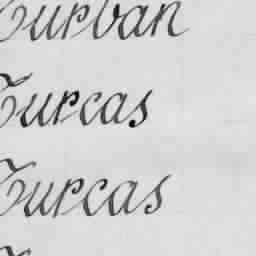 Turban
Turcas
Turcas